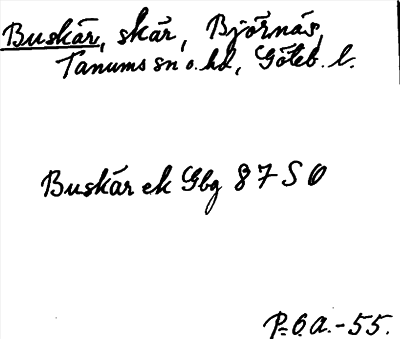 Buskär, skär, Björnäs,
Tanums sn o. hd, Göteb. l.
Buskär ek Gbg 87 S O
P. 6. a. -55.